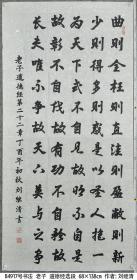 曲則全枉則直洼則盈敝則新
少則得多則惑是以聖人抱一
為天下式不自見故明不自是
故彰不自伐故有功不自矜故
長夫唯不爭故天下莫能與之爭
老子道德經第二十二章丁酉年初秋刘继清書
B4917号书法 老子 道德经选段 68×138cm 作者: 刘继清